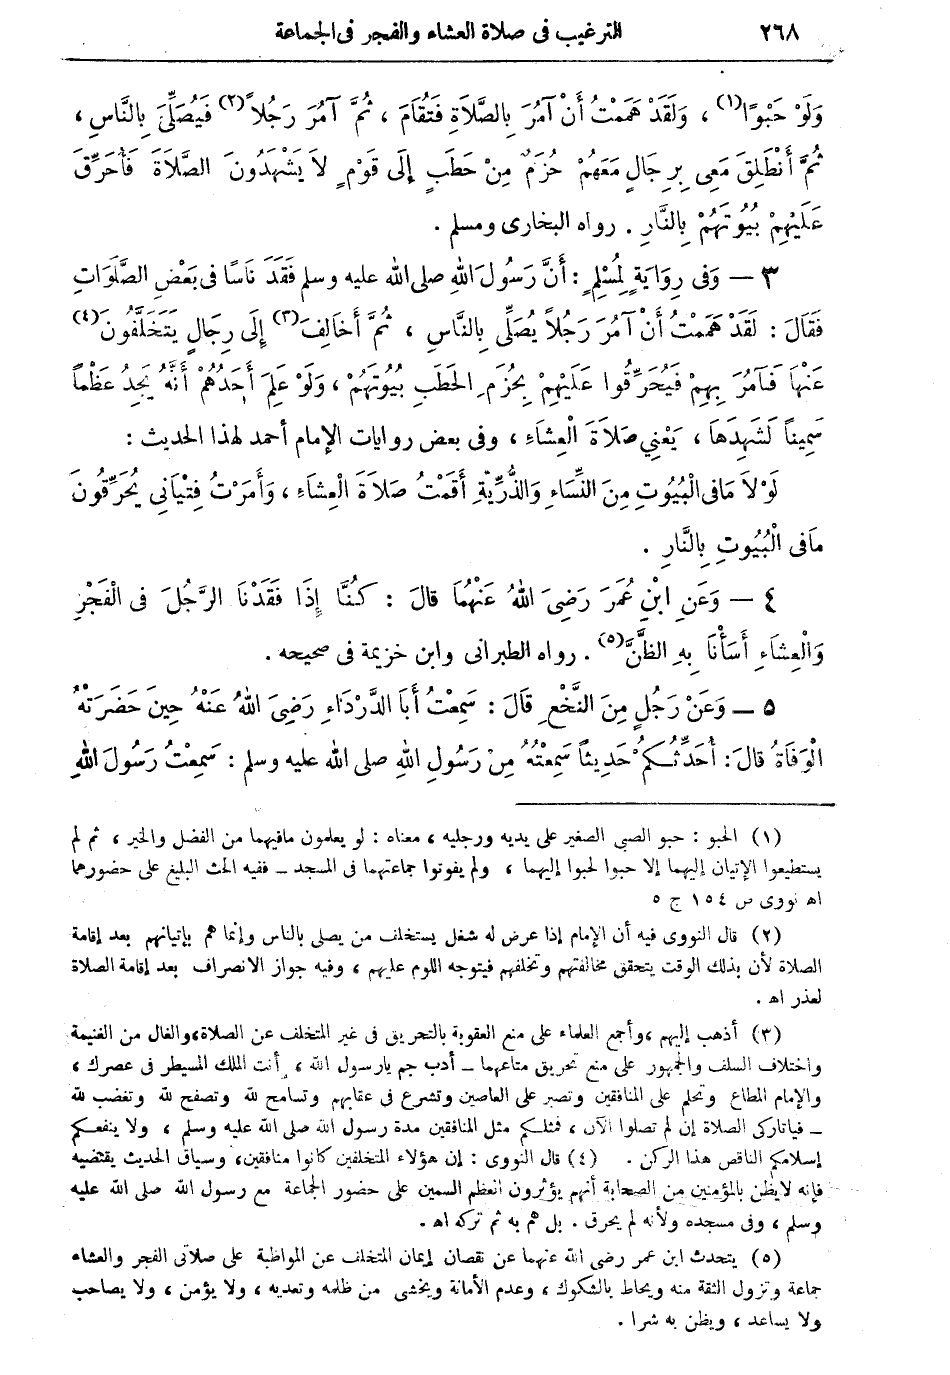 ٢٦٨ الترغيب فى صلاة العشاء والفجر فى الجماعة
وَلَوْ حَبْوًا (١) ، وَلَقَدْ هَمَمْتُ أَنْ آمُرَ بِالصَّلَاةِ فَتُقَامَ ، ثُمَّ آمُرَ رَجُلاً (٢) فَيُصَلِّىَ بِالنَّاسِ ،
ثُمَّ أَنْطَلِقَ مَعِى بِرِجَالٍ مَعَهُمْ حُزَمٌ مِنْ حَطَبٍ إِلَى قَوْمٍ لاَ يَشْهَدُونَ الصَّلَاةَ فَأُحَرِّقَ
عَلَيْهِمْ بُيُوتَهُمْ بِالنَّارِ . رواه البخارى ومسلم .
٣ — وَفِى رِوَايَةٍ لِمُسْلِمٍ : أَنَّ رَسُولَ اللهِ صلى الله عليه وسلم فَقَدَ نَاسًا فِى بَعْضِ الصَّلَوَاتِ
فَقَالَ : لَقَدْ هَمَمْتُ أَنْ آمُرَ رَجُلاً يُصَلِّى بِالنَّاسِ ، ثُمَّ أُخَالِفَ (٣) إِلَى رِجَالٍ يَتَخَلَّفُونَ (٤)
عَنْهَا فَآمُرَ بِهِمْ فَيُحَرِّقُوا عَلَيْهِمْ بِحُزَمِ الحَطَبِ بُيُوتَهُمْ ، وَلَوْ عَلِمَ أَحَدُهُمْ أَنَّهُ يَجِدُ عَظْماً
سَمِيناً لَشَهِدَهَا ، يَعْنِي صَلَاةَ الْعِشَاءِ ، وفى بعض روايات الإمام أحمد لهذا الحديث :
لَوْلاَ مَا فِى الْبُيُوتِ مِنَ النِّسَاءِ وَالذُّرِّيَّةِ أَقَمْتُ صَلَاةَ الْعِشَاءِ ، وَأَمَرْتُ فِتْيَانِى يُحَرِّقُونَ
مَا فِى الْبُيُوتِ بِالنَّارِ .
٤ — وَعَنِ ابْنِ عُمَرَ رَضِىَ اللهُ عَنْهُمَا قالَ : كُنَّا إِذَا فَقَدْنَا الرَّجُلَ فى الْفَجْرِ
وَالْعِشَاءِ أَسَأْنَا بِهِ الظَّنَّ (٥) . رواه الطبرانى وابن خزيمة فى صحيحه .
٥ — وَعَنْ رَجُلٍ مِنَ النَّخْعِ قَالَ : سَمِعْتُ أَبَا الدَّرْدَاءِ رَضِىَ اللهُ عَنْهُ حِينَ حَضَرَتْهُ
الْوَفَاةُ قالَ : أُحَدِّثُكُمْ حَدِيثاً سَمِعْتُهُ مِنْ رَسُولِ اللهِ صلى الله عليه وسلم : سَمِعْتُ رَسُولَ اللهِ
(١) الحبو : حبو الصبى الصغير على يديه ورجليه ، معناه : لو يعلمون مافيهما من الفضل والخير ، ثم لم
يستطيعوا الإتيان إليهما إلا حبوا لحبوا إليهما ، ولم يفوتوا جماعتهما فى المسجد — ففيه الحث البليغ على حضورهما
اه نووى ص ١٥٤ ج ٥
(٢) قال النووى فيه أن الإمام إذا عرض له شغل يستخلف من يصلى بالناس وإنما هم بإتيانهم بعد إقامة
الصلاة لأن بذلك الوقت يتحقق مخالفتهم وتخلفهم فيتوجه اللوم عليهم ، وفيه جواز الانصراف بعد إقامة الصلاة
لعذر اه .
(٣) أذهب إليهم ، وأجمع العلماء على منع العقوبة بالتحريق فى غير المتخلف عن الصلاة، والغال من الغنيمة
واختلاف السلف والجمهور على منع تحريق متاعهما — أدب جم يارسول الله ، أنت الملك المسيطر فى عصرك ،
والإمام المطاع وتحلم على المنافقين وتصبر على العاصين وتشرع فى عقابهم وتسامح لله وتصفح لله وتغضب لله
— فياتاركى الصلاة إن لم تصلوا الآن ، فمثلكم مثل المنافقين مدة رسول الله صلى الله عليه وسلم ، ولا ينفعكم
إسلامكم الناقص هذا الركن . (٤) قال النووى : إن هؤلاء المتخلفين كانوا منافقين، وسياق الحديث يقتضيه
فإنه لايظن بالمؤمنين من الصحابة أنهم يؤثرون العظم السمين على حضور الجماعة مع رسول الله صلى الله عليه
وسلم ، وفى مسجده ولأنه لم يحرق . بل هم به ثم تركه اه .
(٥) يتحدث ابن عمر رضى الله عنهما عن نقصان إيمان المتخلف عن المواظبة على صلاتى الفجر والعشاء
جماعة وتزول الثقة منه ويحاط بالشكوك ، وعدم الأمانة ويخشى من ظلمه وتعديه ، ولا يؤمن ، ولا يصاحب
ولا يساعد ، ويظن به شرا .